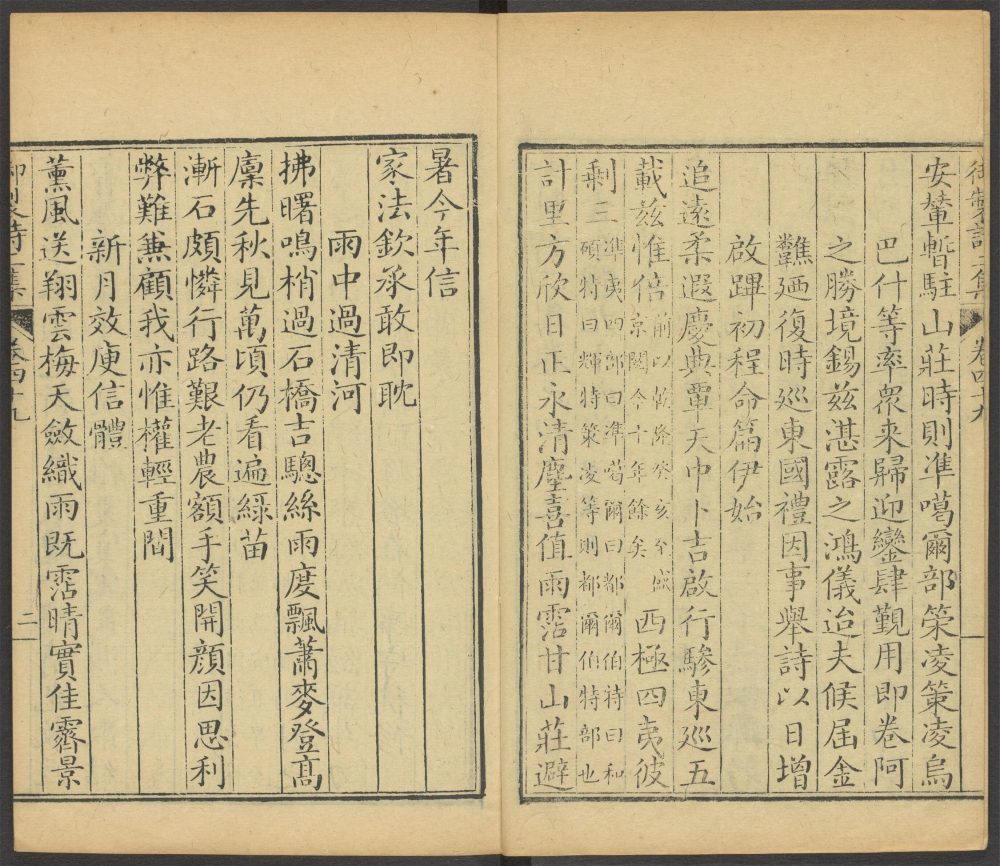 安輦暫駐山莊時則準噶爾部策凌策凌烏
巴什等率眾來歸迎鑾肆覲用即卷阿
之勝境錫茲湛露之鴻儀迨夫候屆金
飈廼復時巡東國禮因事舉詩以日增
啟蹕初程命篇伊始
追遠柔遐慶典覃天中卜吉啟行驂東巡五
載茲惟倍前以乾隆癸亥至盛京闕今十年餘矣西極四夷彼
剩三準夷四部曰準噶爾曰都爾伯特曰和碩特曰輝特策凌等則都爾伯特部也
計里方欣日正永清塵喜值雨霑甘山莊避
暑今年信
家法欽承敢即耽
雨中過清河
拂曙鳴梢過石橋吉驄絲雨度飄蕭麥登高
廩先秋見萬頃仍看遍綠苗
漸石頗憐行路艱老農額手笑開顏因思利
弊難兼顧我亦惟權輕重間
新月效庾信體
薰風送翔雲梅天斂織雨既霑晴實佳霽景
御製詩二集
卷四十九
二